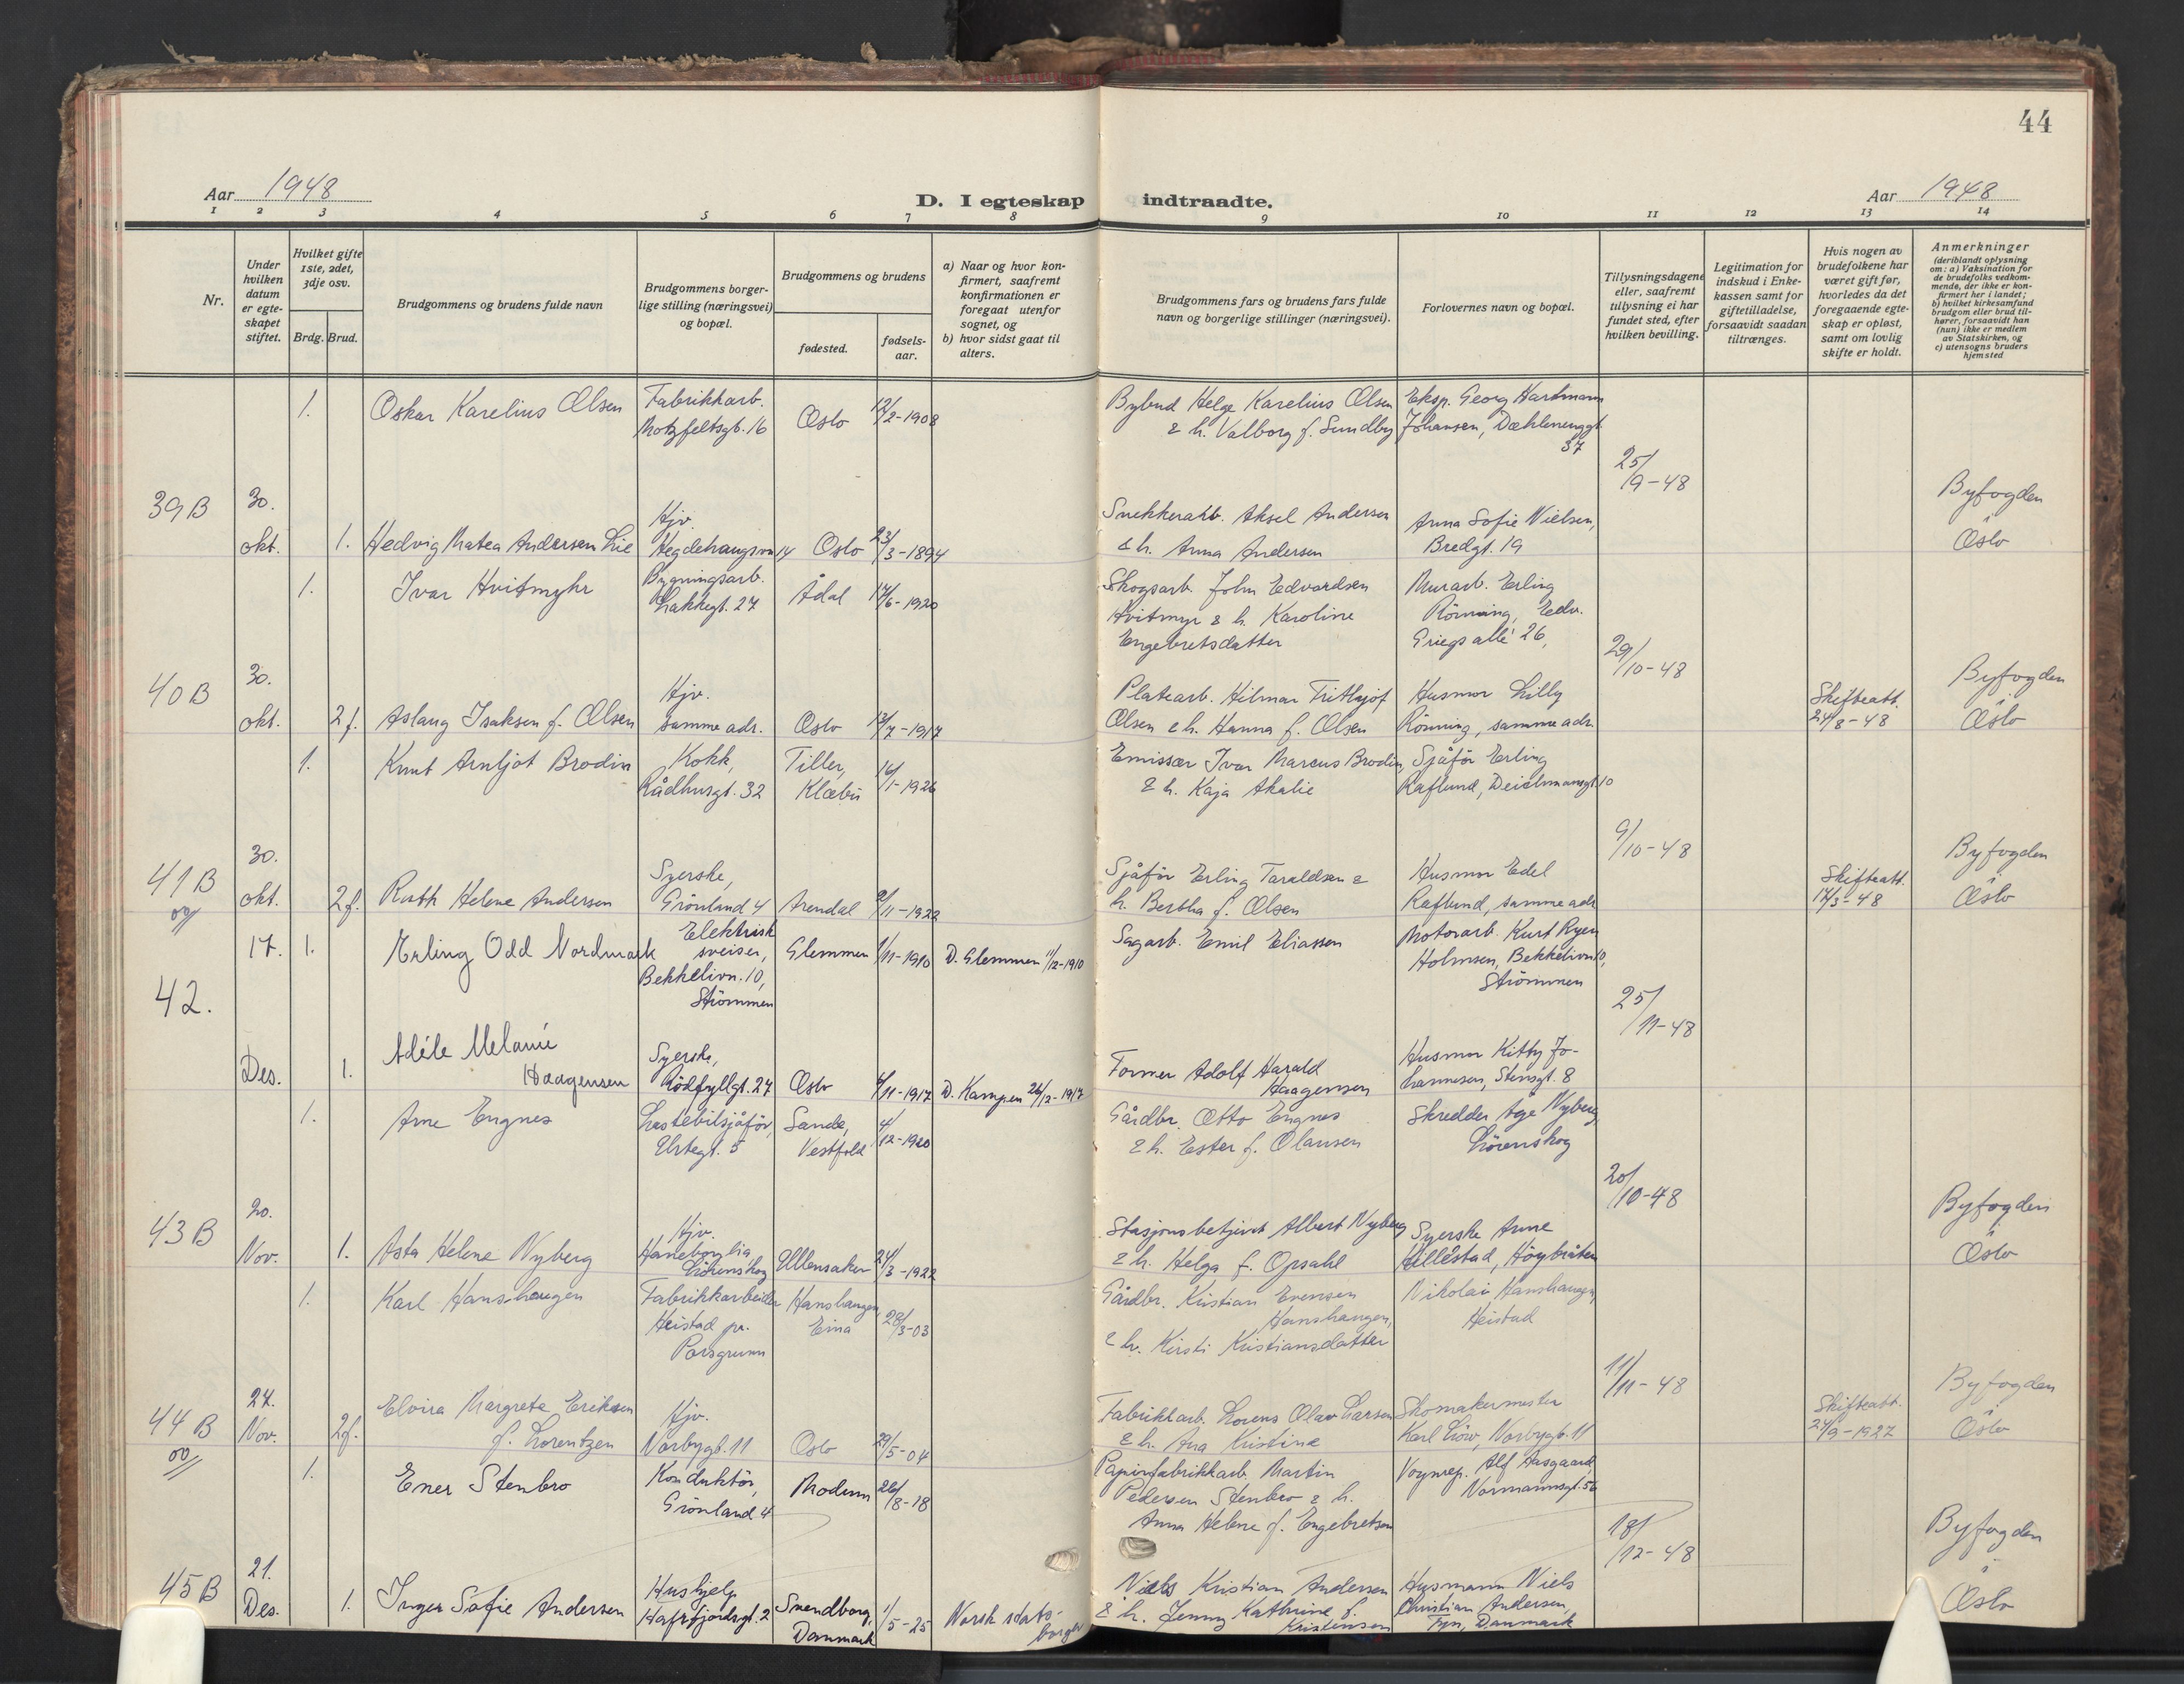 44
Aar 1948
D. I egteskap indtraadte.
Aar 1948
1 2 3 4 5 6 7 8 9 10 11 12 13 14
Nr.
Under hvilken datum er egte-skapet stiftet.
Hvilket gifte 1ste, 2det, 3dje osv.
Brdg. Brud.
Brudgommens og brudens fulde navn
Brudgommens borger-lige stilling (næringsvei) og bopæl.
Brudgommens og brudens
fødested.
fødsels-aar.
a) Naar og hvor kon-firmert, saafremt konfirmationen er foregaat utenfor sognet, og
b) hvor sidst gaat til alters.
Brudgommens fars og brudens fars fulde navn og borgerlige stillinger (næringsvei).
Forlovernes navn og bopæl.
Tillysningsdagene eller, saafremt tillysning ei har fundet sted, efter hvilken bevilling.
Legitimation for indskud i Enke-kassen samt for giftetilladelse, forsaavidt saadan tiltrænges.
Hvis nogen av brudefolkene har været gift før, hvorledes da det foregaaende egte-skap er opløst, samt om lovlig skifte er holdt.
Anmerkninger
(deriblandt oplysning om: a) Vaksination for de brudefolks vedkom-mende, der ikke er kon-firmert her i landet;
b) hvilket kirkesamfund brudgom eller brud til-hører, forsaavidt han (hun) ikke er medlem av Statskirken, og
c) utensogns bruders hjemsted
1. Oskar Karelius Olsen Fabrikkarb. Motzfeltsgt. 16 Oslo 12/2-1908 Bybud Helge Karelius Olsen & h. Valborg f. Sundby Eksp. Georg Hartmann Johansen, Dæhlenenggt. 37
25/9-48
39B 30. okt. 1. Hedvig Matea Andersen Lie Hjv. Hegdehaugsvn 14 Oslo 23/3-1894 Snekkerarb. Aksel Andersen & h. Anna Andersen Anna Sofie Nielsen, Bredgt. 19 Byfogden i Oslo
1. Ivar Hvitmyhr Bygningsarb. Lakkegt. 27 Ådal 17/6-1920 Skogsarb. John Edvardsen Hvitmyr & h. Karoline Engebretsdatter Murarb. Erling Rönning, Edv. Griegs allé 26,
29/10-48
40B 30. okt. 2f. Aslaug Isaksen f. Olsen Hjv. samme adr. Oslo 13/7-1917 Platearb. Hilmar Trithjof Olsen & h. Hanna f. Olsen Husmor Lilly Rönning, samme adr. Skifteatt. 24/8-48 Byfogden i Oslo
1. Knut Arnljot Brodin Kokk, Rådhusgt. 32 Tiller, Klæbu 16/1-1926 Emissær Ivar Marcus Brodin, & h. Kaja Akalie Sjåför Erling Raflund, Deichmansgt. 10
9/10-48
41B og 30. okt. 2f. Ruth Helene Andersen Syerske, Grönland 4 Arendal 2/11-1922 Sjåför Erling Taraldsen & h. Bertha f. Olsen Husmor Edel Raflund, samme adr Skifteatt. 17/3-48 Byfogden i Oslo
17. 1. Erling Odd Nordmark Elektrisk sveiser, Bekkelivn. 10, Strömmen Glemmen 1/11-1910 D. Glemmen 11/12-1910 Sagarb. Emil Eliassen Motorarb. Kurt Ryen Holmsen, Bekkelivn 10, Strömmen
25/11-48
42. Des. 1. Adèle Melanie Haagensen Syerske, Rödfyllgt. 24 Oslo 4/11-1917 D. Kampen 26/12-1917 Former Adolf Harald Haagensen Husmor Kitty Jo-hannesen, Stensgt. 8
1. Arne Engnes Lastebilsjåför, Urtegt. 5 Sande, Vestfold 4/12-1920 Gårdbr. Otto Engnes & h. Ester f. Olausen Skredder Age Nyberg, Lörenskog
20/10-48
43B 20. Nov. 1. Asta Helene Nyberg Hjv. Haneborglia Lörenskog Ullensaker 24/3-1922 Stasjonsbetjent Albert Nyberg & h. Helga f. Opsahl Syerske Anne Hillestad, Höybråten Byfogden i Oslo
1. Karl Hanshaugen Fabrikkarbeider Heistad pr. Porsgrunn Hanshaugen, Eina 28/3-03 Gårdbr. Kristian Evensen Hanshaugen, & h. Kirsti Kristiansdatter Nikolai Hanshaugen, Heistad
11/11-48
44B og 27. Nov. 2f. Elvira Margrete Eriksen f. Lorentzen Hjv. Norbygt. 11 Oslo 29/5-04 Fabrikkarb. Lorens Olav Larsen & h. Ana Kristine Skomakermester Karl Löw, Norbygt. 11 Skifteatt. 24/9-1927 Byfogden i Oslo
1. Ener Stenbro Konduktör, Grönland 4 Modum 26/8-18 Papirfabrikkarb. Martin Pedersen Stenbro & h. Anna Helene f. Engebretsen Vognrep. Alf Aasgaard, Normannsgt. 56
18/12-48
45B 21. Des. 1. Inger Sofie Andersen Hushjelp Hafrsfjordsgt. 2 Svendborg, Danmark 1/5-25 Norsk stats-borger Niels Kristian Andersen & h. Jenny Kathrine f. Kristensen Husmann Niels Christian Andersen, Fyn, Danmark Byfogden i Oslo